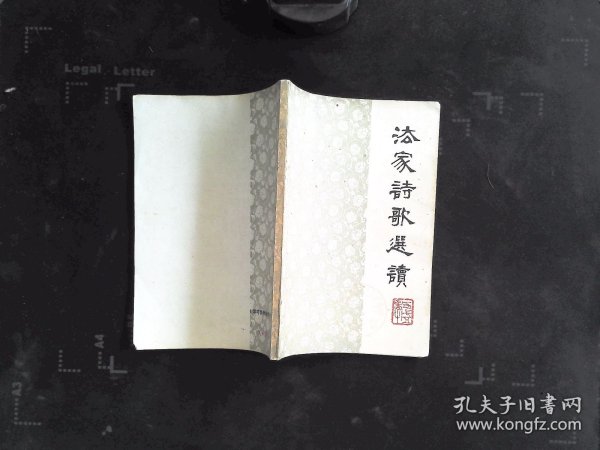 法家詩歌選讀
Legal Letter
A4
A3
孔夫子旧书网
www.kongfz.com